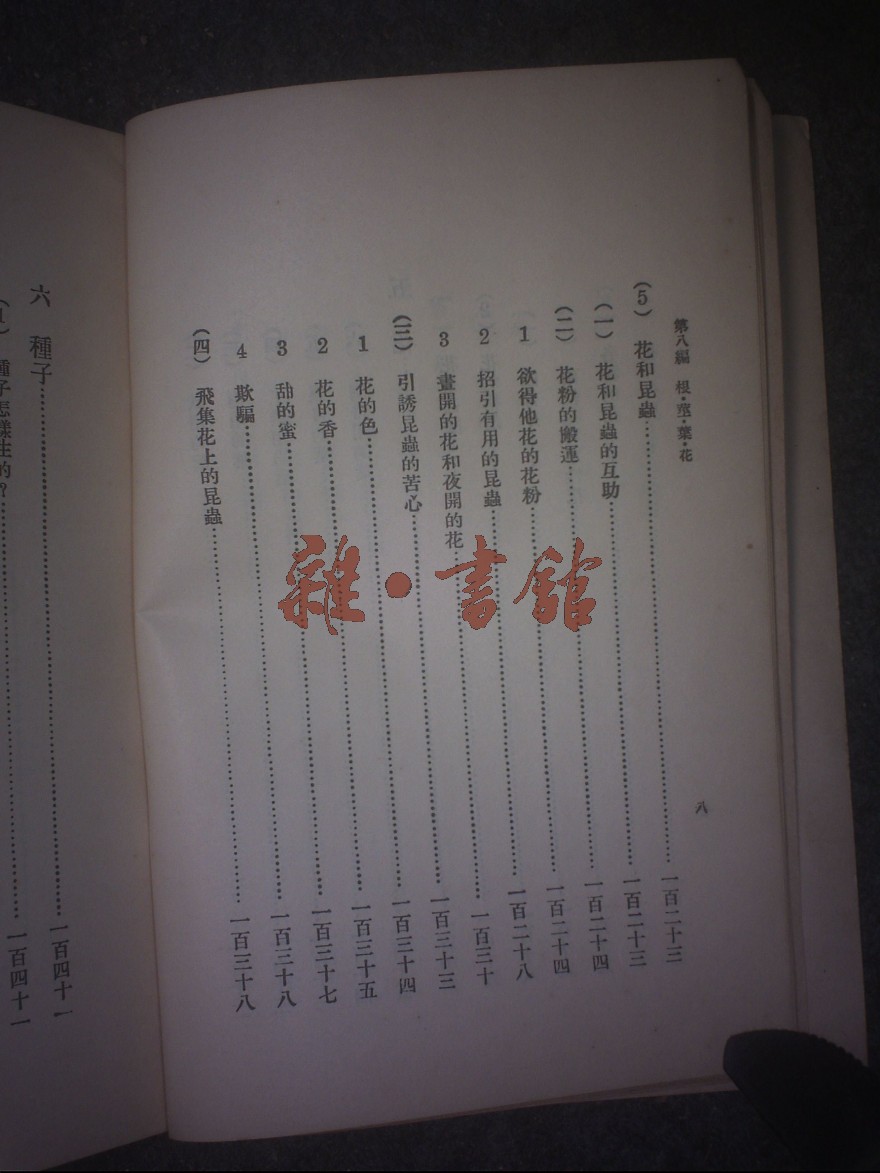 第八編 根·莖·葉·花
八
(5) 花和昆蟲……一百二十三
(一) 花和昆蟲的互助……一百二十三
(二) 花粉的搬運……一百二十四
1 欲得他花的花粉……一百二十四
2 招引有用的昆蟲……一百二十八
3 晝開的花和夜開的花……一百三十
(三) 引誘昆蟲的苦心……一百三十三
1 花的色……一百三十四
2 花的香……一百三十五
3 甜的蜜……一百三十七
4 欺騙……一百三十八
(四) 飛集花上的昆蟲……一百三十八
六 種子……一百四十一
(1) 種子怎樣生的?……一百四十一
雜·書館